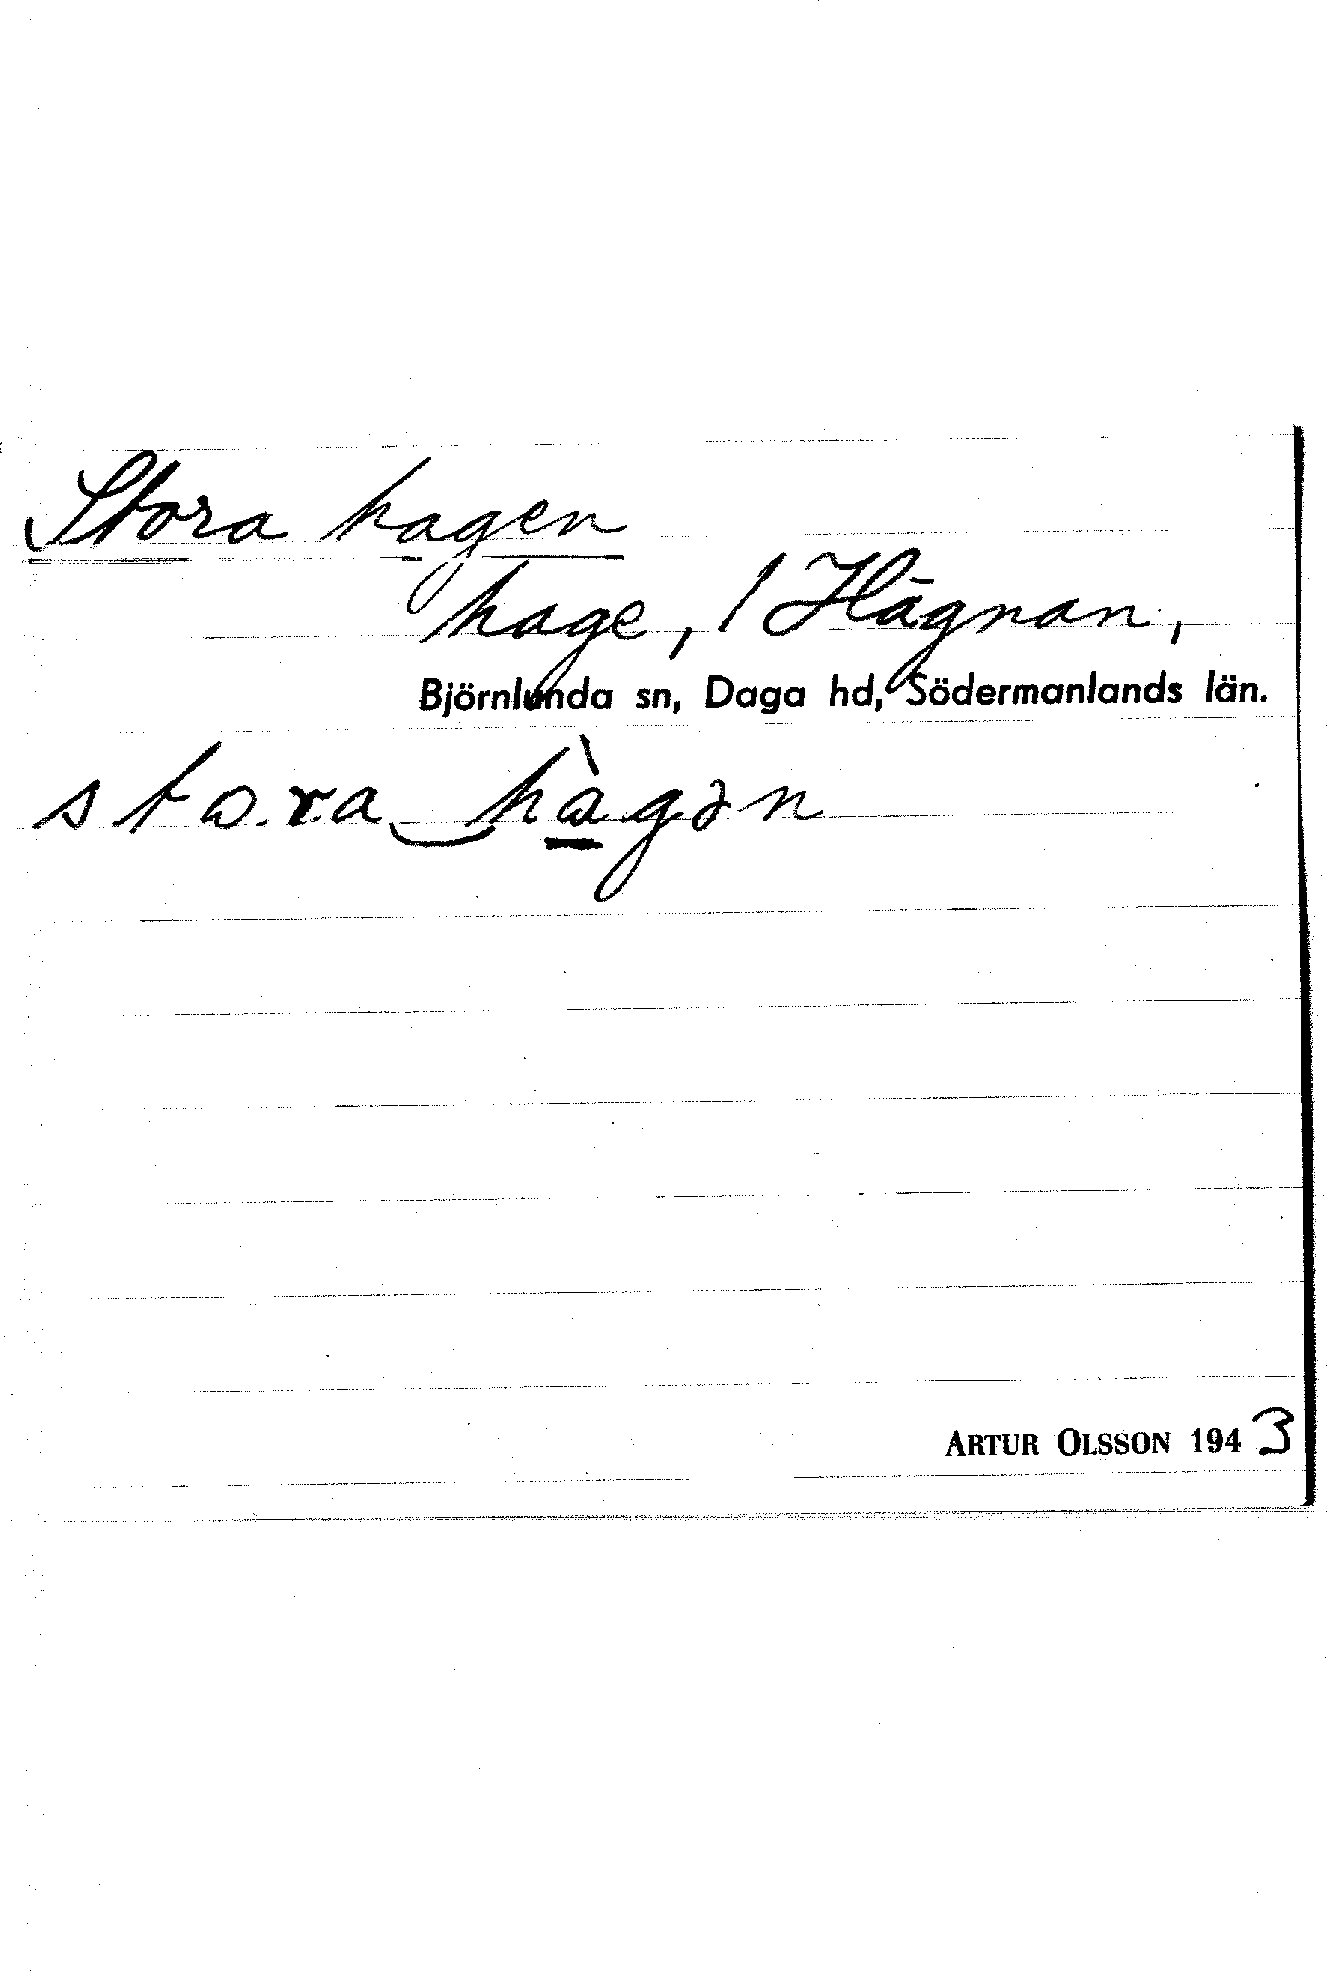 Stora hagen
hage, 1 Hagnan,
Björnlunda sn, Daga hd, Södermanlands län.
stωra hàgən
ARTUR OLSSON 1943